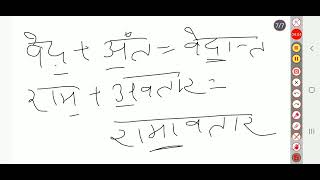 वेद + अंत = वेदान्त
राम + अवतार =
रामावतार